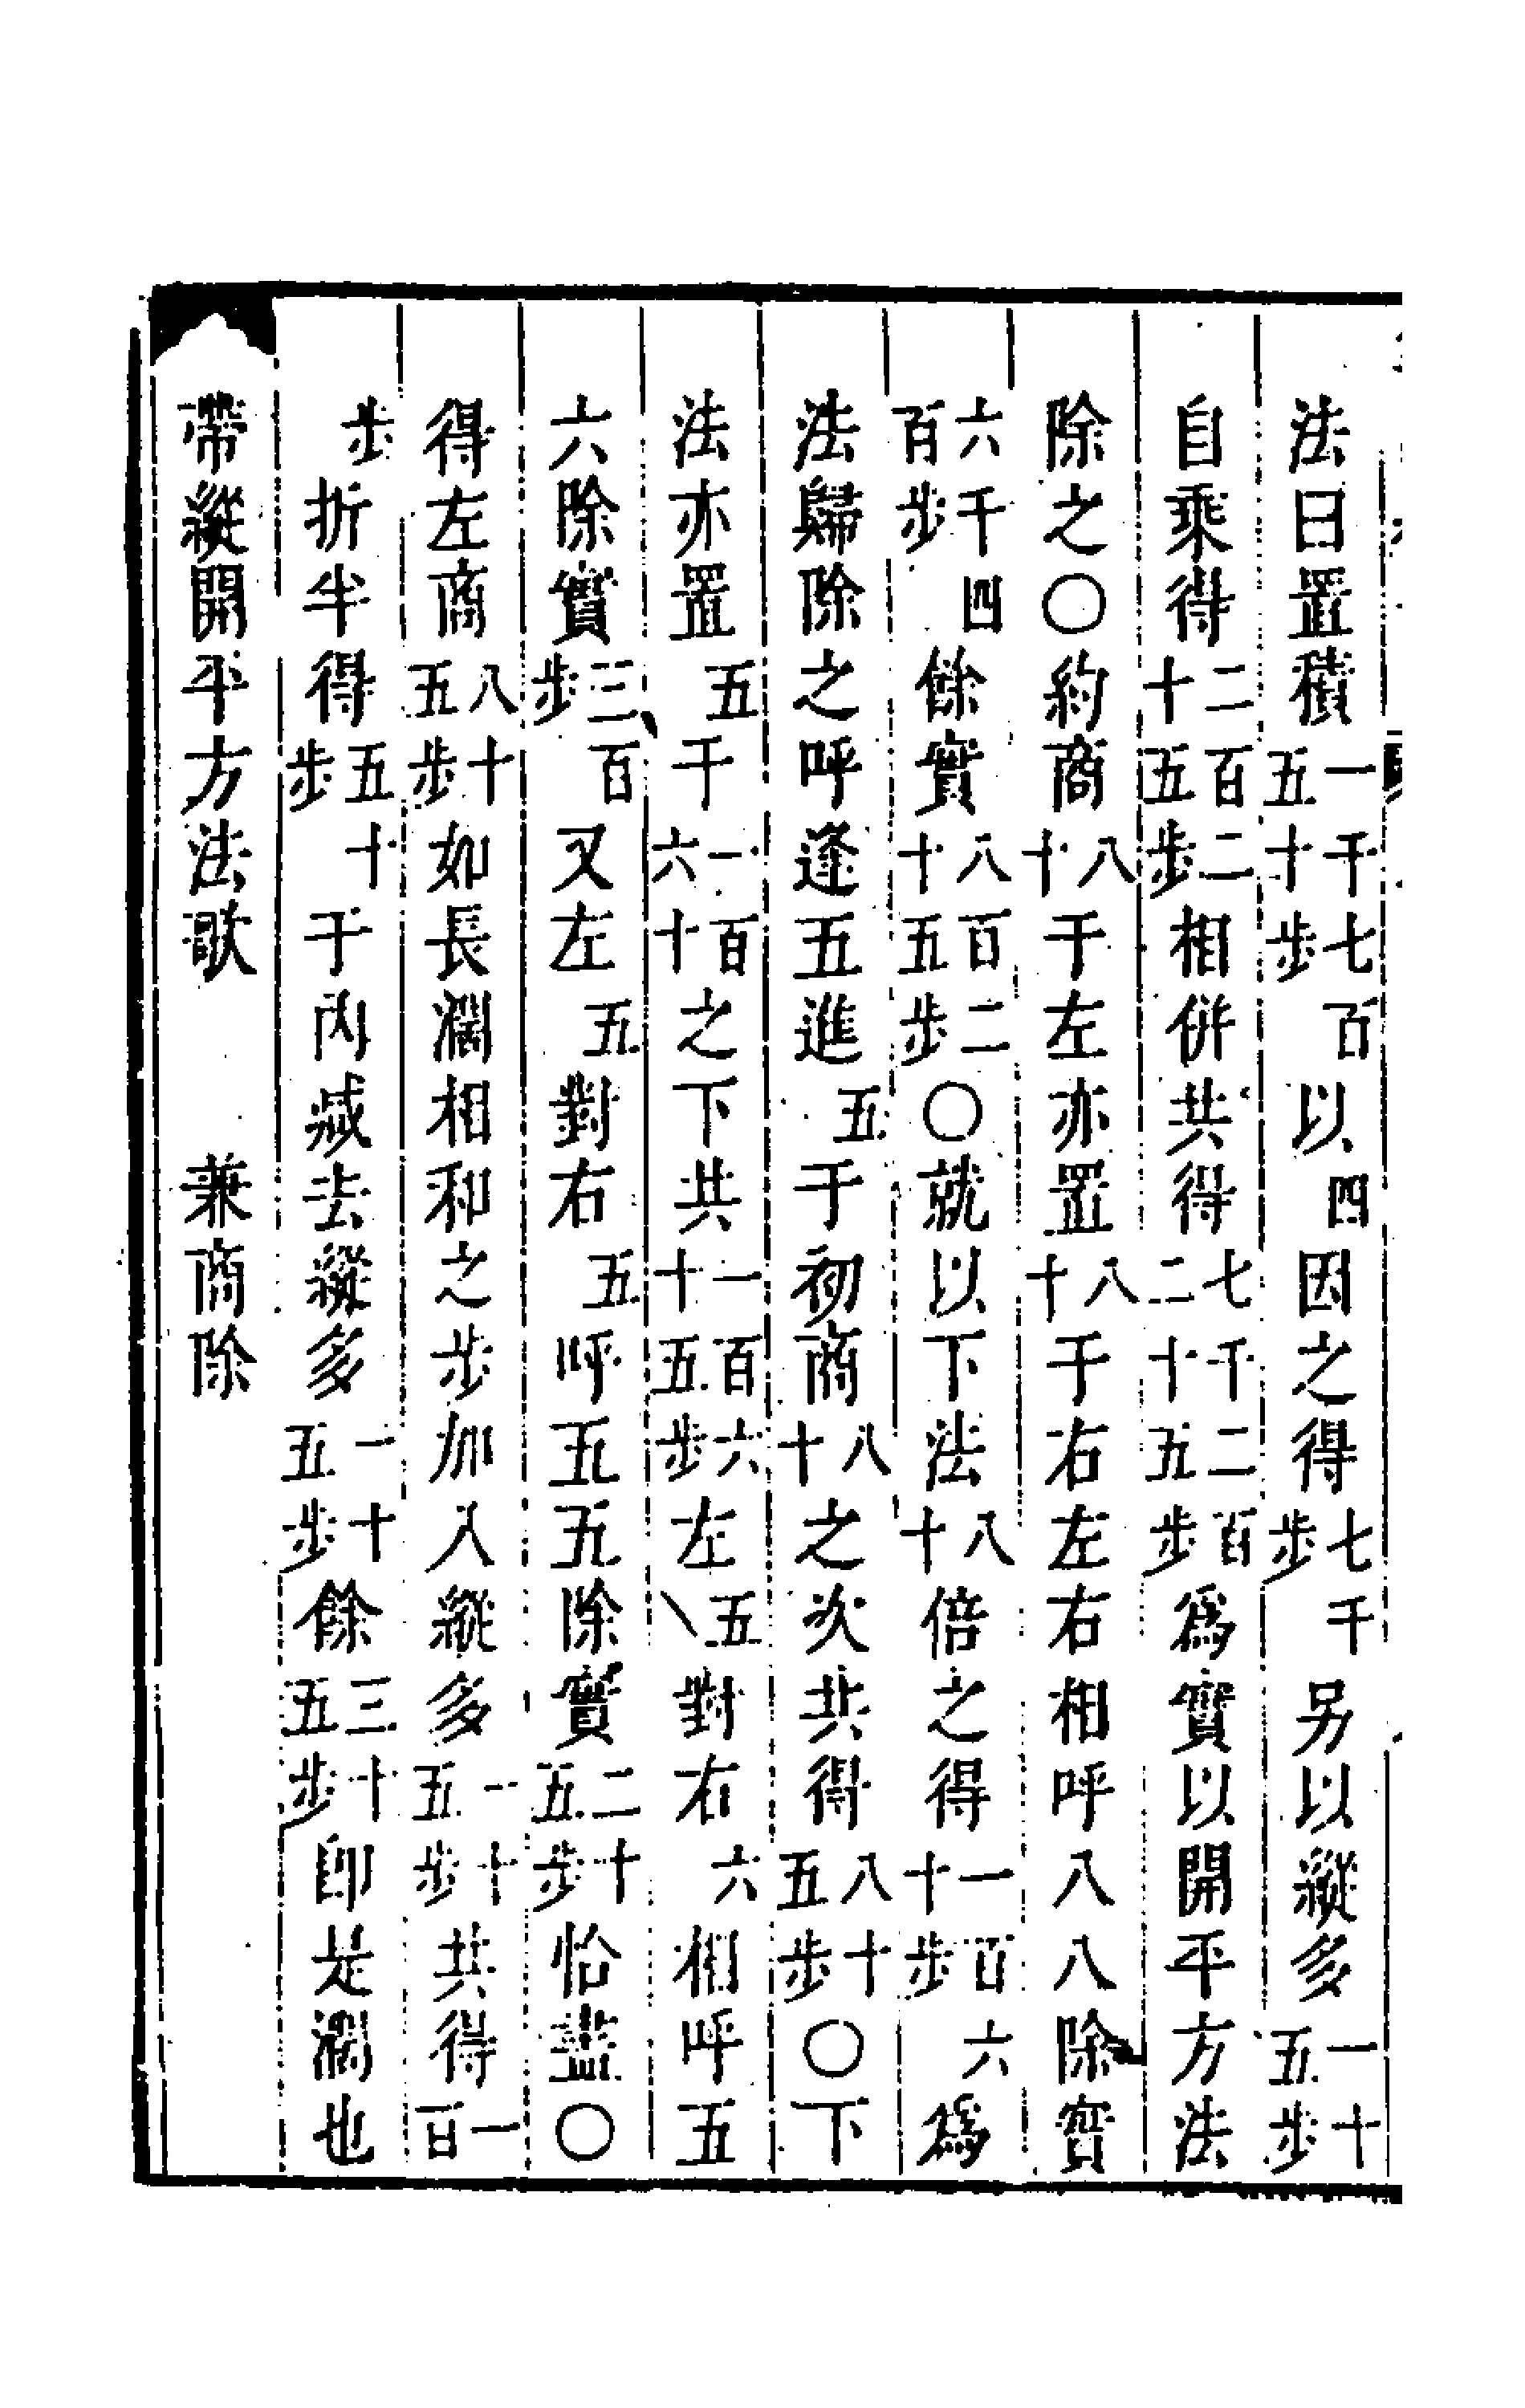 法曰置積一千七百五十步以四因之得七千步另以縱多一十五步
自乘得二百二十五步相併共得七千二百二十五步爲實以開平方法
除之〇約商八十于左亦置八十于右左右相呼八八除實
六千四百步餘實八百二十五步〇就以下法八十倍之得一百六十步爲
法歸除之呼逢五進五于初商八十之次共得八十五步〇下
法亦置五于一百六十之下共一百六十五步左五對右六相呼五
六除實三百步又左五對右五呼五五除實二十五步恰盡〇
得左商八十五步如長濶相和之步加入縱多一十五步共得一百
步折半得五十步于內减去縱多一十五步餘三十五步卽是濶也
帶縱開平方法歌　兼商除